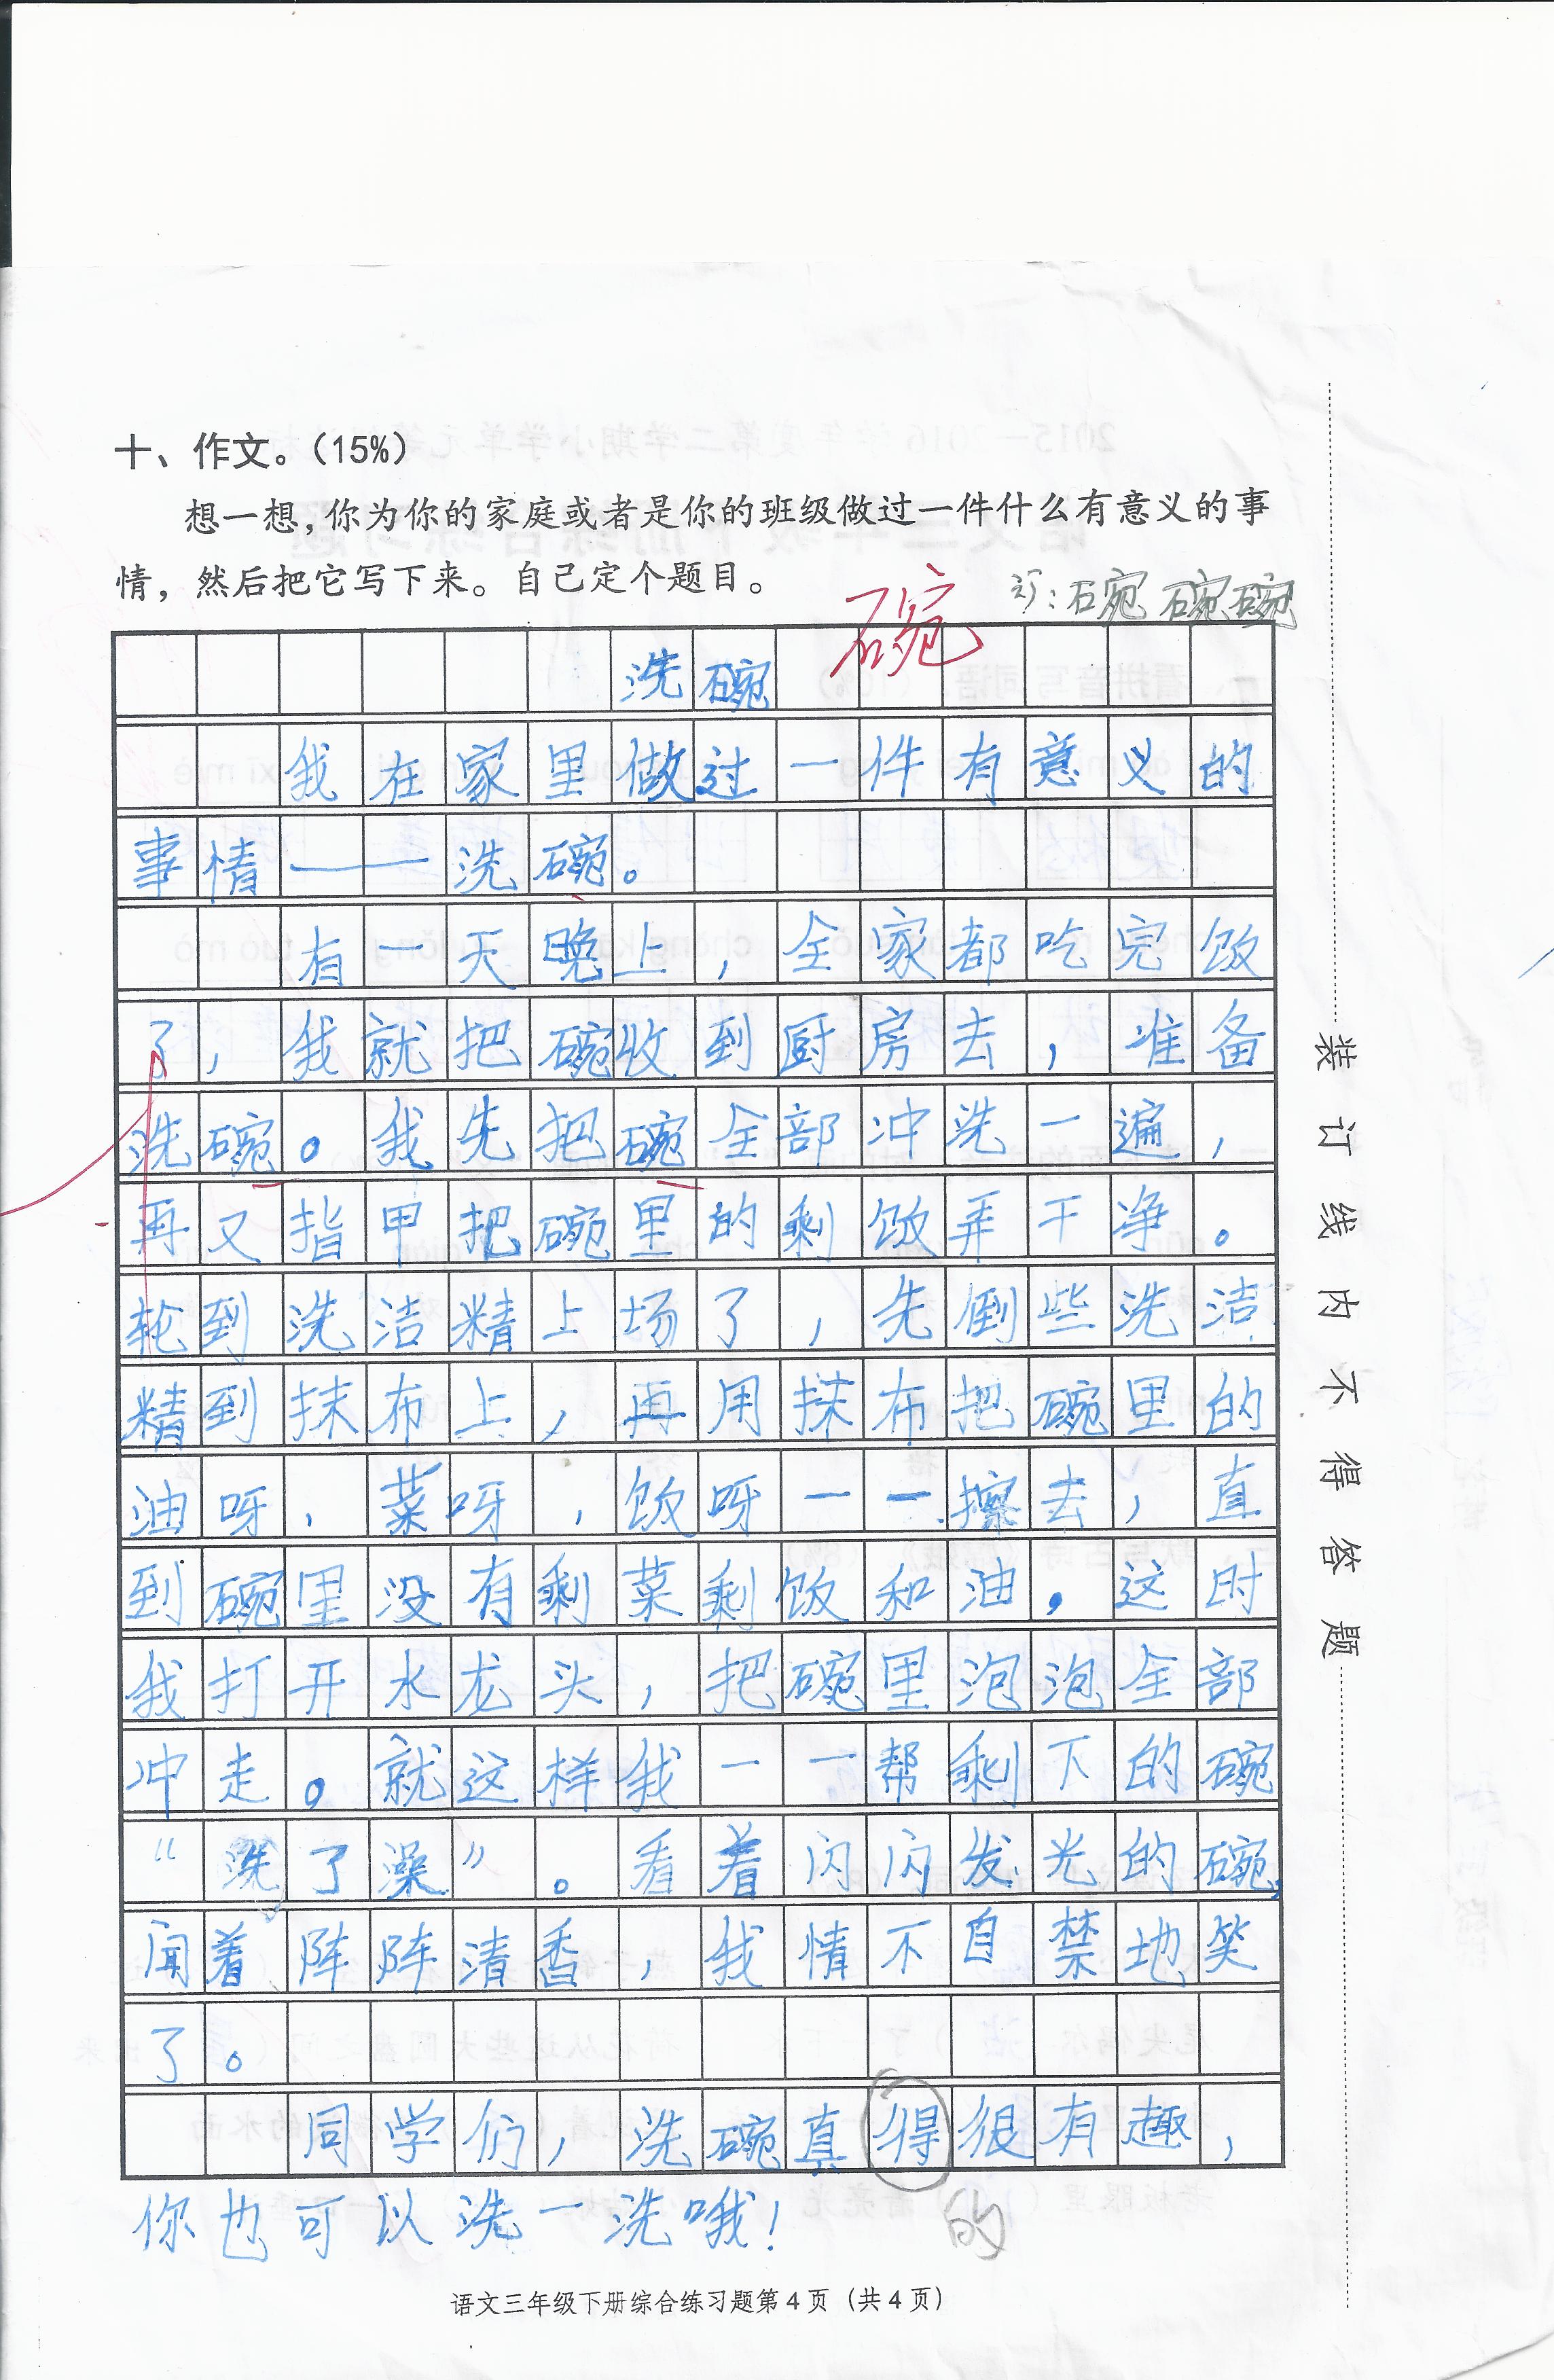 十、作文。(15%)
想一想,你为你的家庭或者是你的班级做过一件什么有意义的事
情，然后把它写下来。自己定个题目。
碗
订:碗 碗 碗
洗碗
我在家里做过一件有意义的
事情——洗碗。
有一天晚上,全家都吃完饭
了,我就把碗收到厨房去,准备
洗碗。我先把碗全部冲洗一遍,
再又指甲把碗里的剩饭弄干净。
轮到洗洁精上场了,先倒些洗洁
精到抹布上,再用抹布把碗里的
油呀,菜呀,饭呀一一擦去,直
到碗里没有剩菜剩饭和油。这时
我打开水龙头,把碗里泡泡全部
冲走。就这样我一一帮剩下的碗
“洗了澡”。看着闪闪发光的碗,
闻着阵阵清香,我情不自禁地笑
了。
同学们,洗碗真得很有趣,
你也可以洗一洗哦!
的
语文三年级下册综合练习题第4页 (共4页)
装订线内不得答题